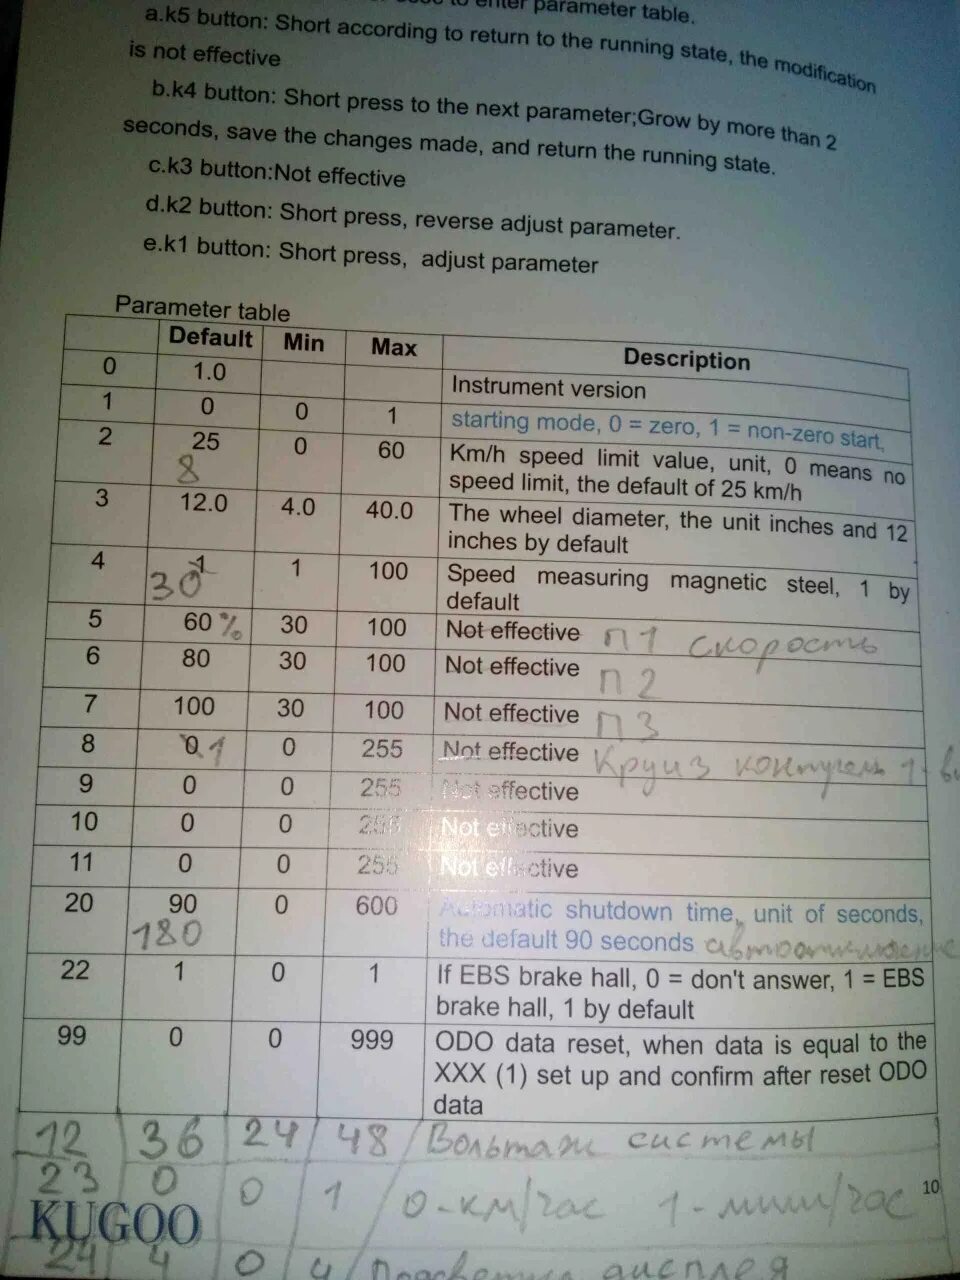 to enter parameter table.
a.k5 button: Short according to return to the running state, the modification
is not effective
b.k4 button: Short press to the next parameter;Grow by more than 2
seconds, save the changes made, and return the running state.
c.k3 button:Not effective
d.k2 button: Short press, reverse adjust parameter.
e.k1 button: Short press, adjust parameter
Parameter table
Default Min Max Description
0 1.0 Instrument version
1 0 0 1 starting mode, 0 = zero, 1 = non-zero start,
2 25 0 60 Km/h speed limit value, unit, 0 means no
8 speed limit, the default of 25 km/h
3 12.0 4.0 40.0 The wheel diameter, the unit inches and 12
inches by default
4 1 1 100 Speed measuring magnetic steel, 1 by
30 default
5 60 % 30 100 Not effective П1 скорость
6 80 30 100 Not effective П2
7 100 30 100 Not effective П3
8 0 1 0 255 Not effective Круиз 1-
9 0 0 255 Not effective
10 0 0 255 Not effective
11 0 0 255 Not effective
20 90 0 600 Automatic shutdown time, unit of seconds,
180 the default 90 seconds
22 1 0 1 If EBS brake hall, 0 = don't answer, 1 = EBS
brake hall, 1 by default
99 0 0 999 ODO data reset, when data is equal to the
XXX (1) set up and confirm after reset ODO
data
12 36 24 48 Вольтаж системы
23 0 0 1 0-км/час 1-мили/час
10
KUGOO
24 4 0 4 Подсветка дисплея